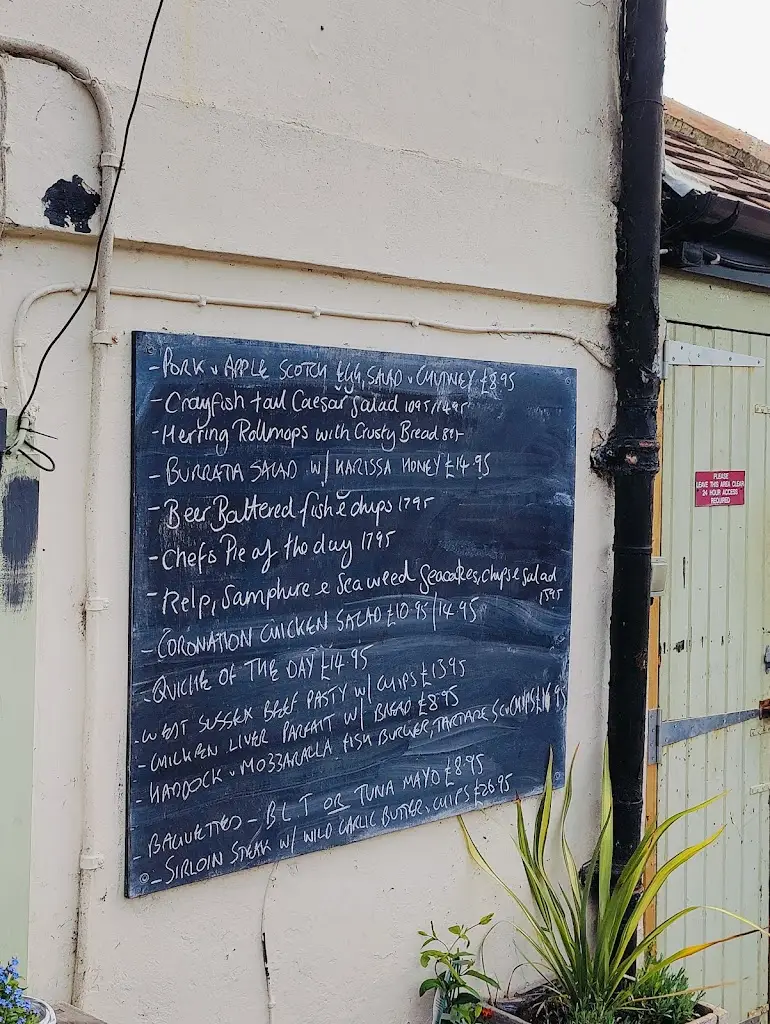 - PORK & APPLE SCOTCH EGG, SALAD & CHUTNEY £8.95
- Crayfish tail Caesar Salad 1095/1495
- Herring Rollmops with Crusty Bread
- BURRATA SALAD W/ HARISSA HONEY £14.95
- Beer Battered fish & chips 1795
- Chefs Pie of the day 1795
- Kelp, Samphire & Seaweed Seacakes, chips & salad
1595
- CORONATION CHICKEN SALAD £10.95/14.95
- QUICHE OF THE DAY £14.95
- WEST SUSSEX BEEF PASTY W/ CHIPS £13.95
- CHICKEN LIVER PARFAIT W/ BREAD £8.95
- HADDOCK & MOZZARALLA FISH BURGER, TARTARE SCE CHIPS
- BAGUETTES - BLT OR TUNA MAYO £8.95
- SIRLOIN STEAK W/ WILD GARLIC BUTTER, CHIPS £26.95
PLEASE
LEAVE THIS AREA CLEAR
24 HOUR ACCESS
REQUIRED